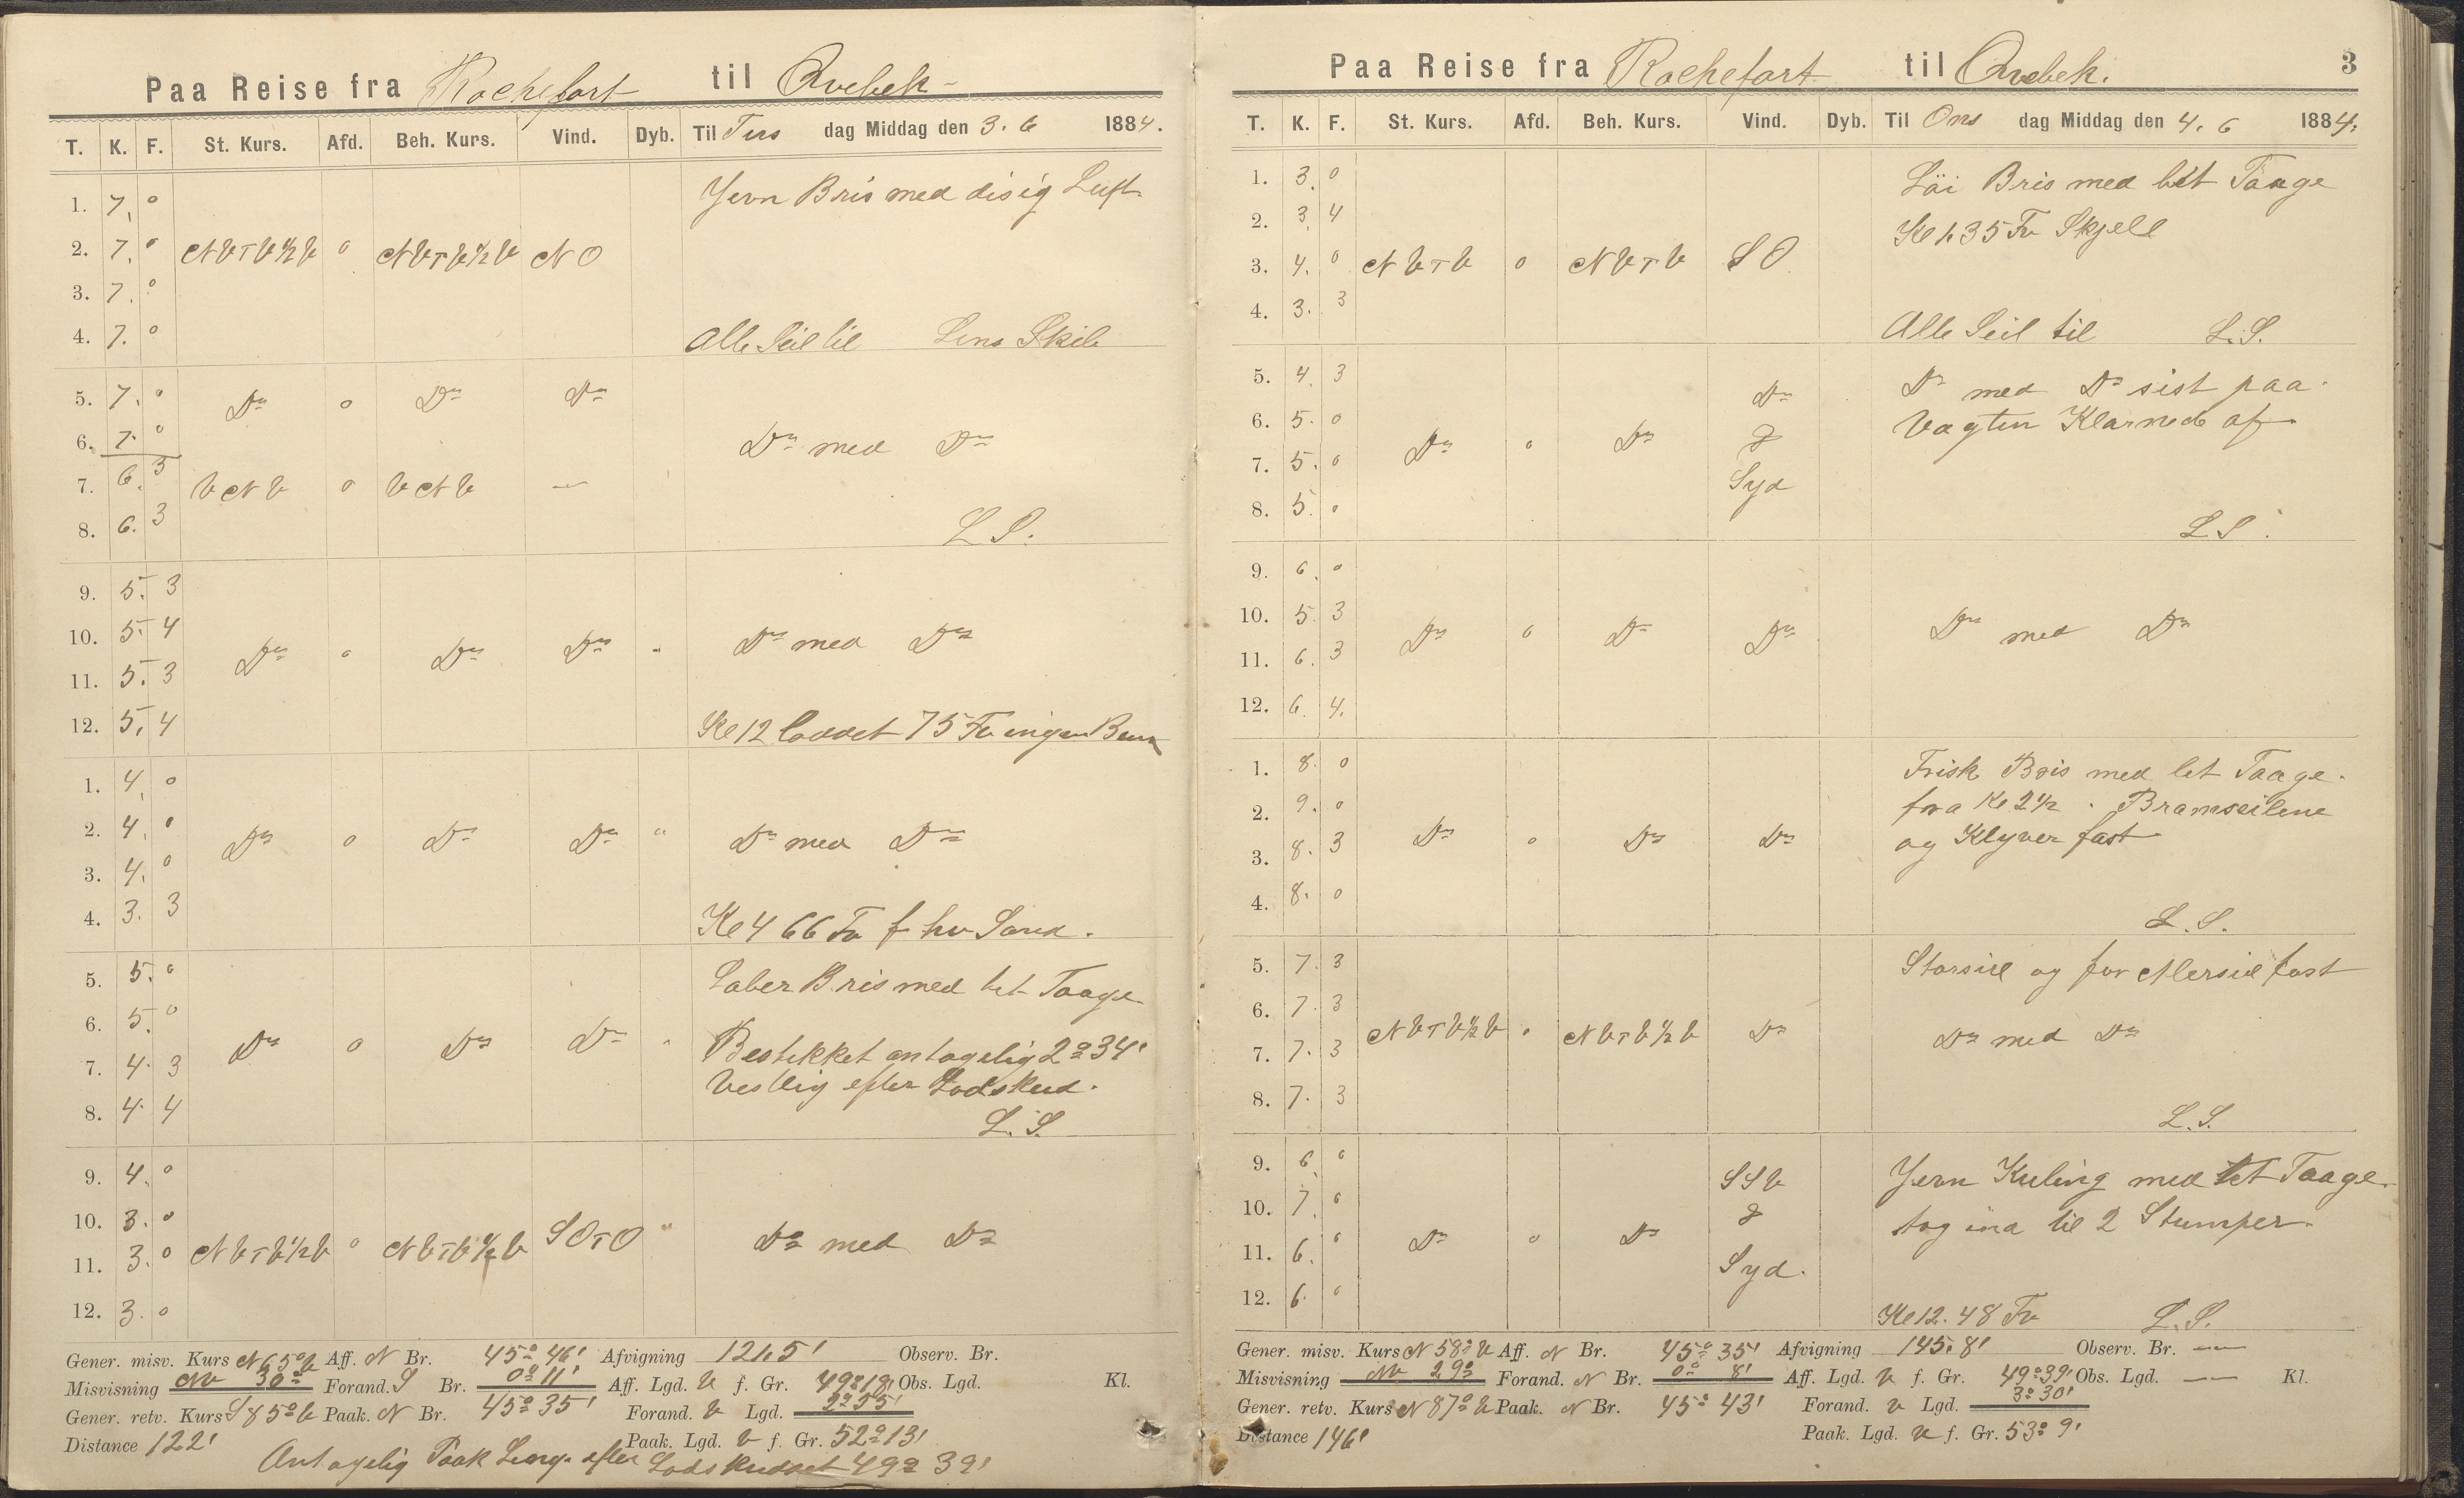 Paa Reise fra Rochefort til Qvebek
T. K. F. St. Kurs. Afd. Beh. Kurs. Vind. Dyb. Til Tirs dag Middag den 3. 6 1884.
Jevn Bris med disig Luft
1. 7. 0
2. 7. 0 NVTV½V 0 NVTV½V NO
3. 7. 0
4. 7. 0
Alle Seil til Lens Skib
5. 7. 0 Do 0 Do Do
6. 7. 0
Do med Do
7. 6. 3 VNV 0 VNV —
8. 6. 3
L S.
9. 5. 3
10. 5. 4
Do 0 Do Do " Do med Do
11. 5. 3
12. 5. 4 Kl 12 loddet 75 Fv ingen Bun
1. 4. 0
2. 4. 0
Do 0 Do Do " Do med Do
3. 4. 0
4. 3. 3 Kl 4 66 Fv f hv Sand.
5. 5. 0 Laber Bris med tet Taage
6. 5. 0
Do 0 Do Do " Bestikket antagelig 2° 34'
7. 4. 3 Vestlig efter Lodskud.
8. 4. 4
L. S.
9. 4. 0
10. 3. 0
11. 3. 0 NVTV½V 0 NVTV½V SOTO " Do med Do
12. 3. 0
Gener. misv. Kurs N 65° V Aff. N Br. 45° 46' Afvigning 121,5' Observ. Br.
Misvisning NV 30° Forand. S Br. 0° 11' Aff. Lgd. V f. Gr. 49° 18' Obs. Lgd. Kl.
Gener. retv. Kurs S 85° V Paak. N Br. 45° 35' Forand. V Lgd. 2° 55'
Distance 122' Paak. Lgd. V f. Gr. 52° 13'
Antagelig Paak Leng. efter Lodskuddet 49° 39'
Paa Reise fra Rochefort til Qvebek. 3
T. K. F. St. Kurs. Afd. Beh. Kurs. Vind. Dyb. Til Ons dag Middag den 4. 6 1884.
1. 3. 0 Löi Bris med tet Taage
2. 3. 4 Kl 1. 35 Fv Skjell
3. 4. 0 NVTV 0 NVTV SO
4. 3. 3 Alle Seil til L. S.
5. 4. 3 Do Do med Do sist paa
6. 5. 0 Vagten Klarnede af
Do 0 Do &
7. 5. 0 Syd
8. 5. 0 L S.
9. 6. 0
10. 5. 3
Do 0 Do Do Do med Do
11. 6. 3
12. 6. 4.
1. 8. 0 Frisk Bris med tet Taage.
2. 9. 0 fra Kl 2½. Bramseilene
3. 8. 3 Do 0 Do Do og Klyver fast
4. 8. 0
L. S.
5. 7. 3 Storseil og for Merseil fast
6. 7. 3
NVTV½V 0 NVTV½V Do Do med Do
7. 7. 3
8. 7. 3
L. S.
9. 6. 0 SSV Jevn Kuling med tet Taage
10. 7. 0 & tog ind til 2 Stumper
11. 6. 0 Do 0 Do Syd.
12. 6. 0 Kl 12. 48 Fv L. S.
Gener. misv. Kurs N 58° V Aff. N Br. 45° 35' Afvigning 145,8' Observ. Br. —
Misvisning NV 29° Forand. N Br. 0° 8' Aff. Lgd. V f. Gr. 49° 39' Obs. Lgd. — Kl.
Gener. retv. Kurs N 87° V Paak. N Br. 45° 43' Forand. V Lgd. 3° 30'
Distance 146' Paak. Lgd. V f. Gr. 53° 9'